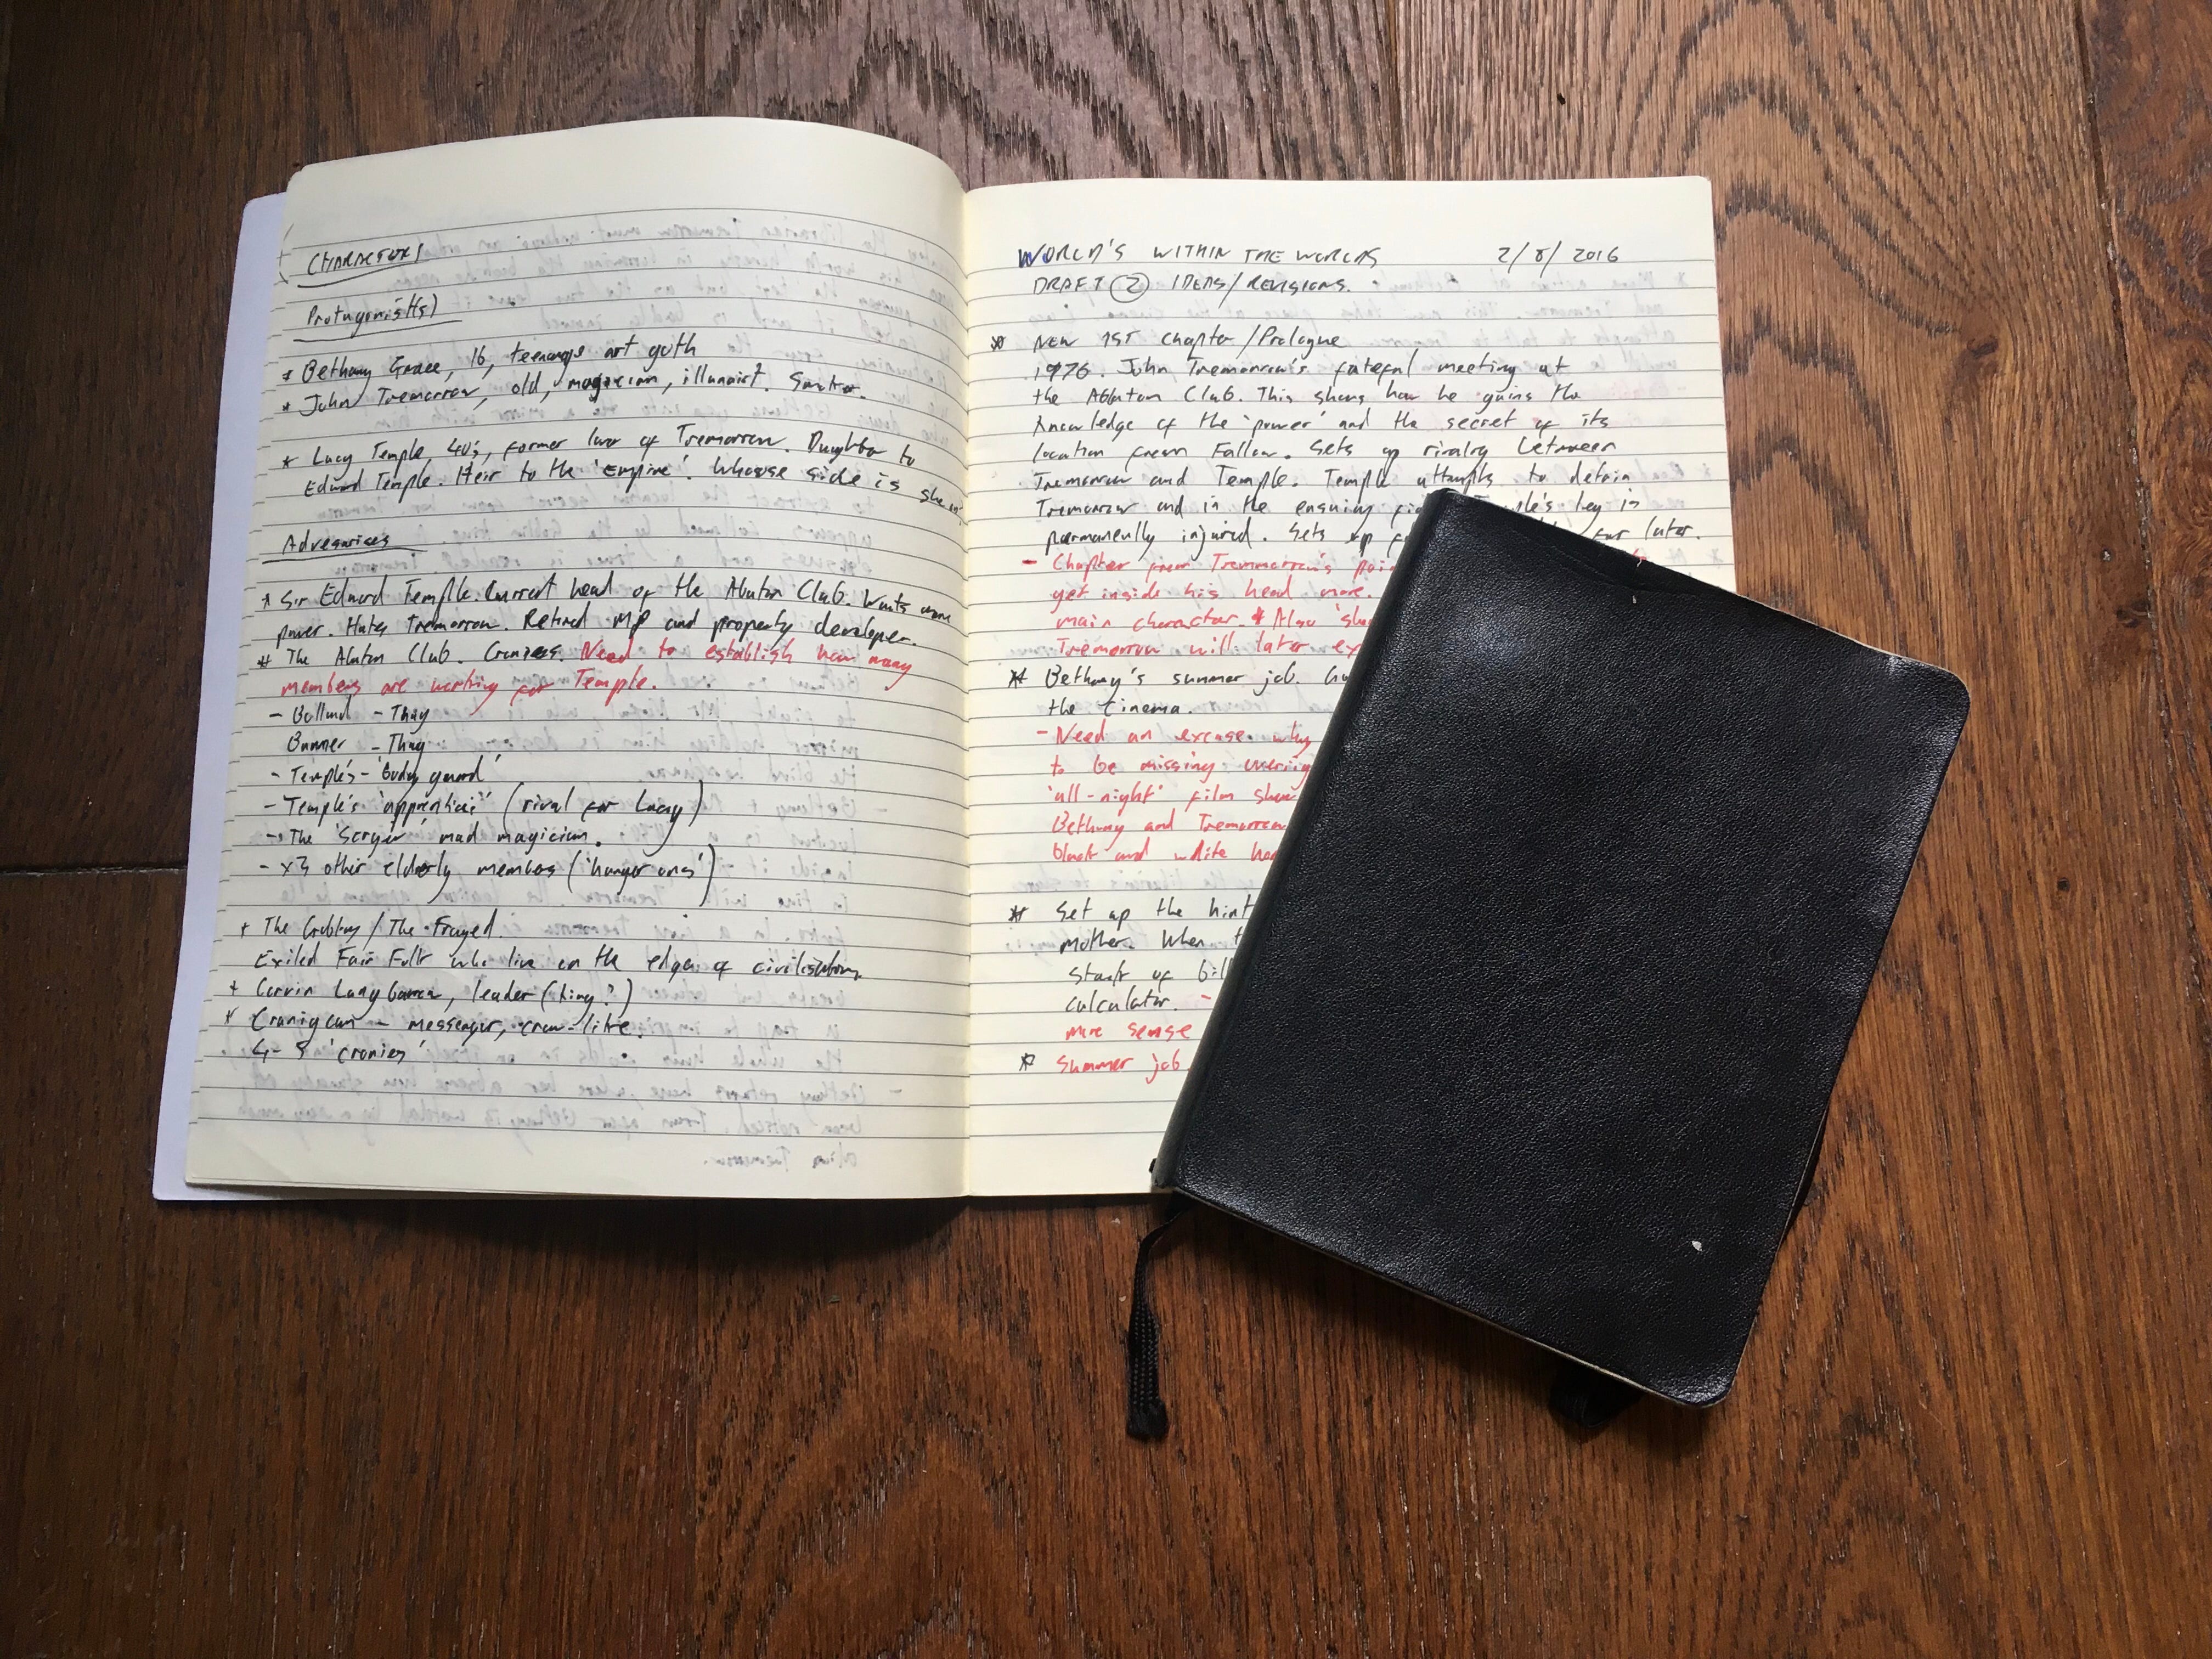 CHARACTERS
Protagonist(s)
* Bethany Grace, 16, teenage art goth
* John Tremorrow, old, magician, illusionist.
* Lucy Temple, 40's, former lover of Tremorrow. Daughter to
Edward Temple. Heir to the 'Empire'. Whose side is she on?
Adversaries
* Sir Edward Temple. Current head of the Abaton Club. Wants more
power. Hates Tremorrow. Retired MP and property developer.
* The Abaton Club. Cronies. Need to establish how many
members are working for Temple.
- Bolland - Thug
Bonner - Thug
- Temple's - 'Body guard'
- Temple's 'apprentice' (rival for Lucy)
- The 'Scryer' mad magician.
- x3 other elderly members ('hanger ons')
* The / The Frayed.
Exiled Fair Folk who live on the edge of civilisation
* Corvin, leader (king?)
* - messenger, crow-like.
4-5 'cronies'
WORLD'S WITHIN THE WORLDS 2/8/2016
DRAFT 2 IDEAS/REVISIONS.
* NEW 1ST Chapter/Prologue
1976. John Tremorrow's fateful meeting at
the Abaton Club. This shows how he gains the
knowledge of the 'power' and the secret of its
location from Fallow. Sets up rivalry between
Tremorrow and Temple. Temple attempts to detain
Tremorrow and in the ensuing leg is
permanently injured. Sets up for later.
- Chapter from Tremorrow's
get inside his head more.
main character. * Also
Tremorrow will later
* Bethany's summer job.
the Cinema.
- Need an excuse why
to be missing
'all-night' film
Bethany and Tremorrow
black and white
* Set up the
mother. When
start of
calculator. -
more sense
* Summer job